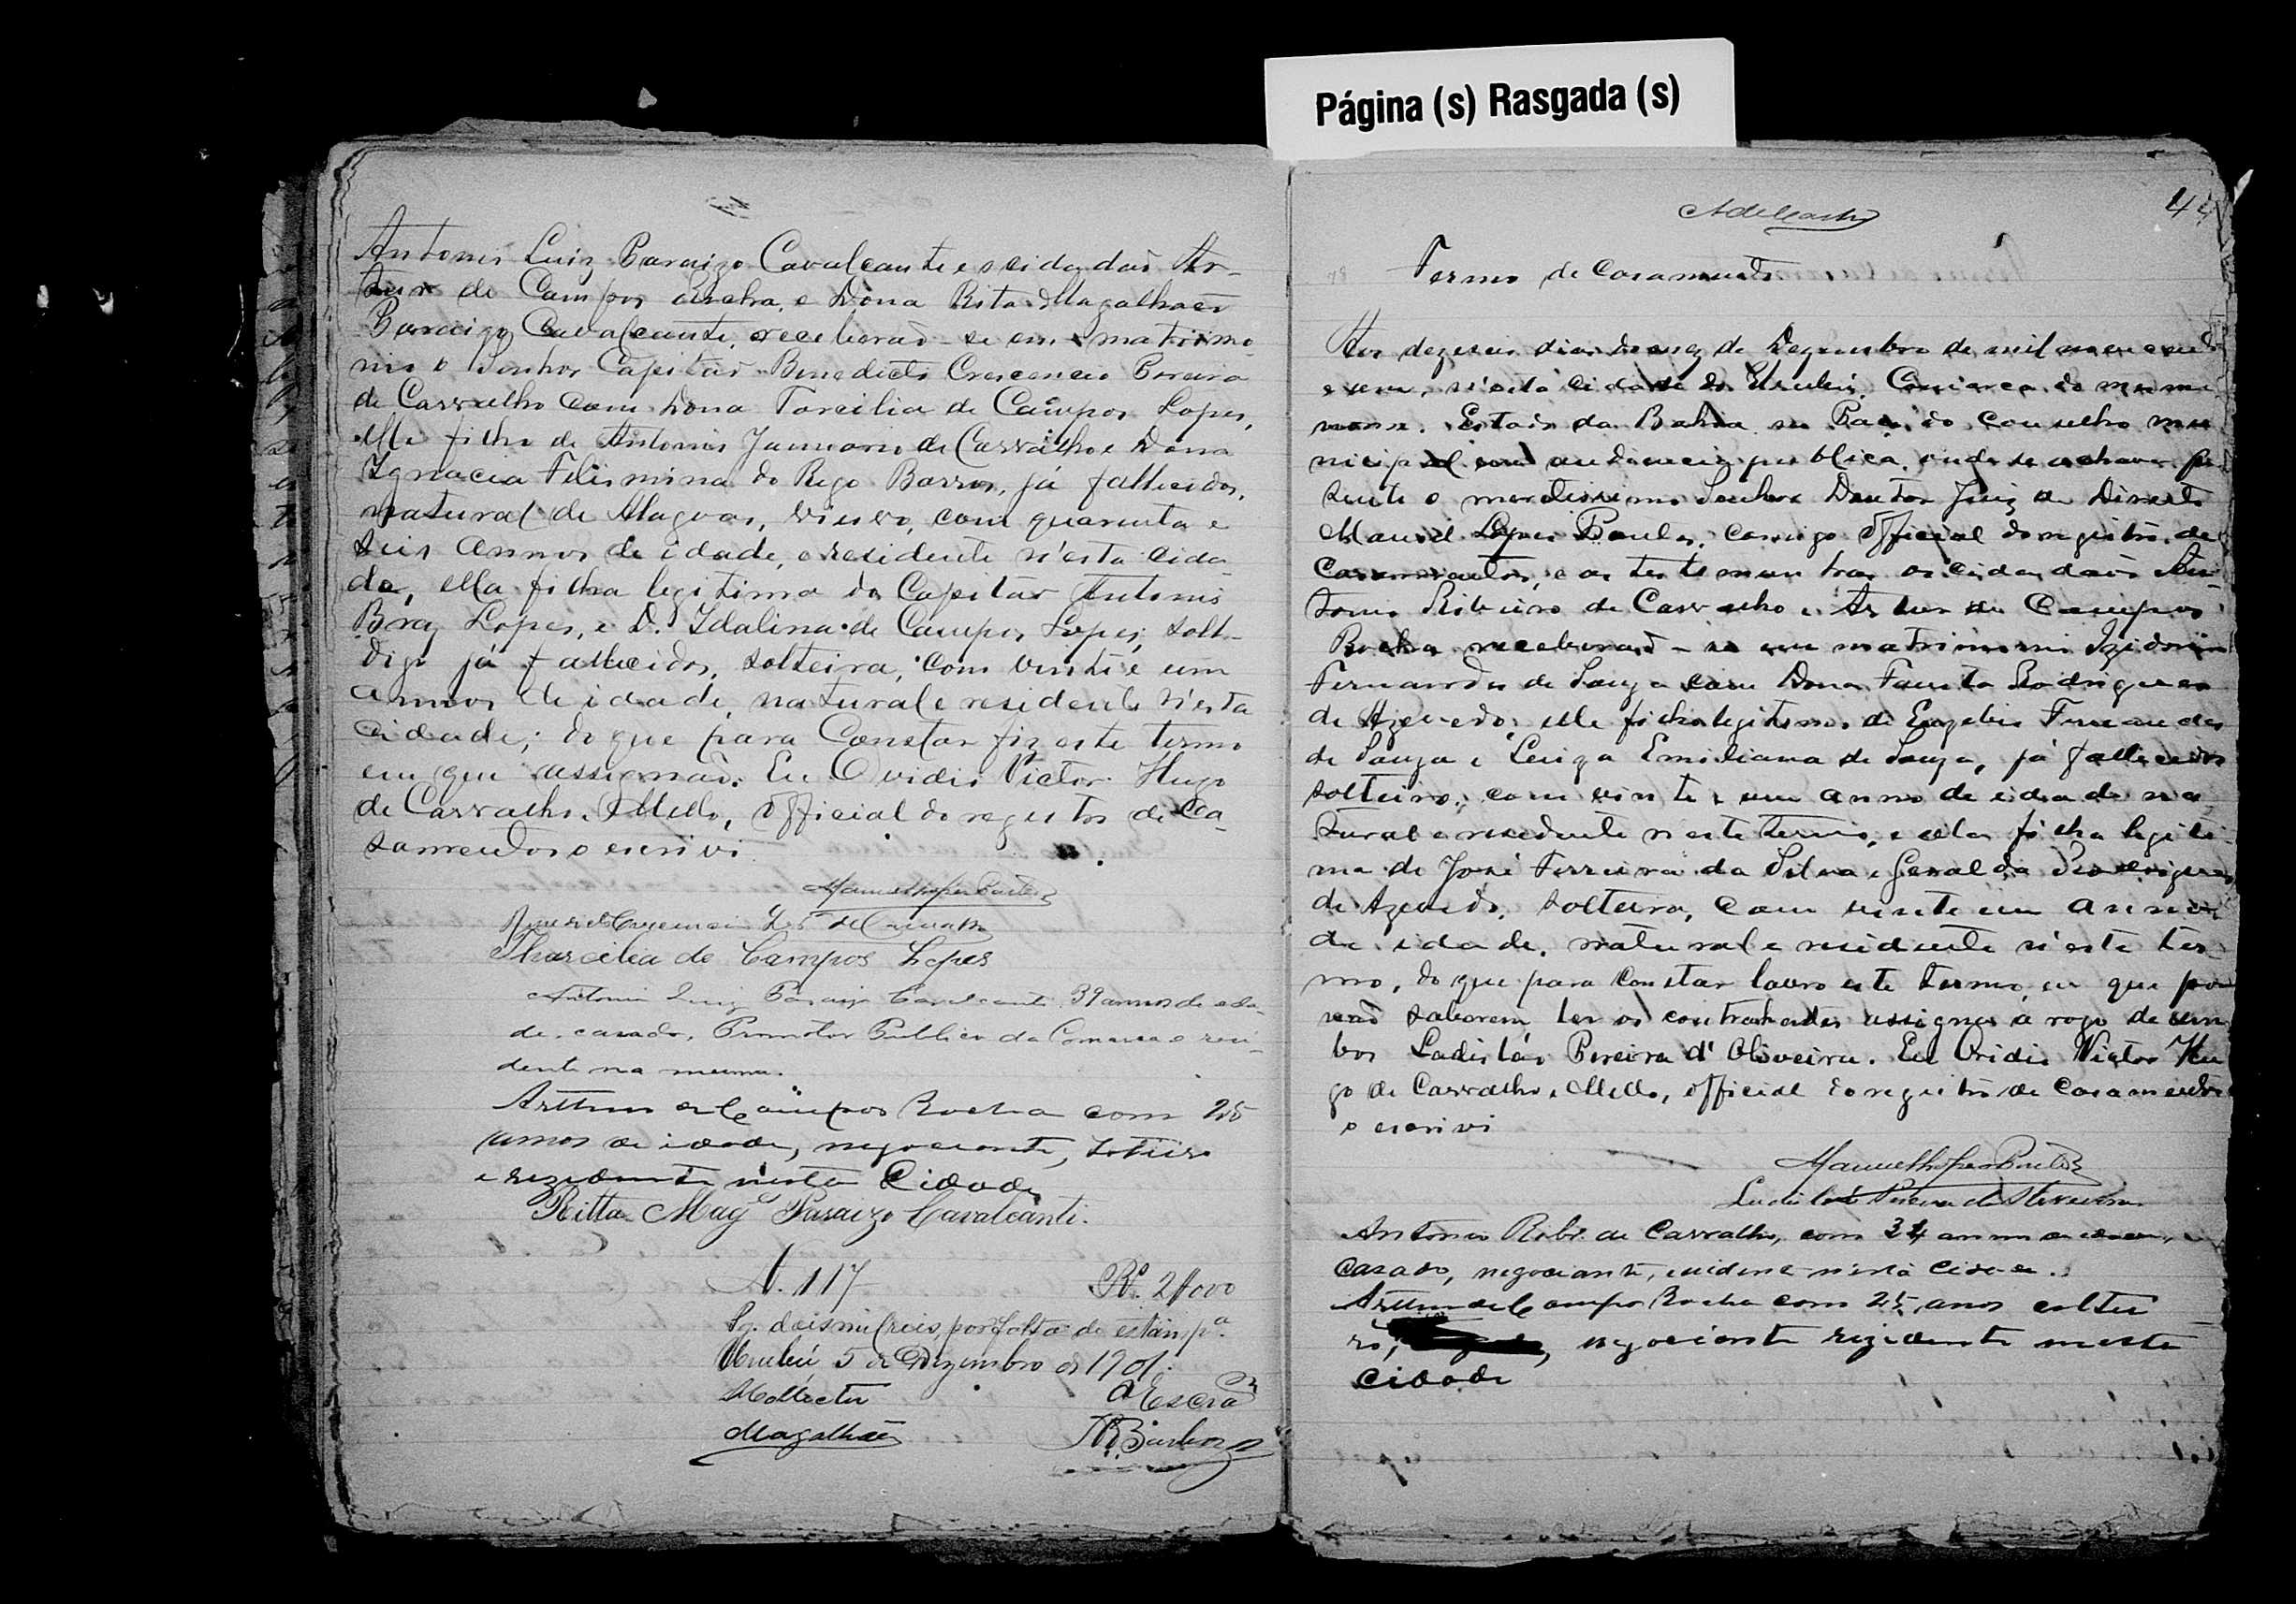 Página (s) Rasgada (s)
Antonio Luiz Paraizo Cavalcante e o cidadão Ar-
tur de Campos Rocha, e Dona Rita Magalhães
Paraizo Cavalcante, receberão-se em matrimo-
nio o Senhor Capitão Benedicto Crescencio Pereira
de Carvalho com Dona Tarcilia de Campos Lopes,
elle filho de Antonio Januario de Carvalho e Dona
Ignacia Felismina do Rego Barros, já fallecidos,
natural de Alagoas, viuvo, com quarenta e
seis annos de idade, e residente n'esta cida
de, ella filha legitima do Capitão Antonio
Braz Lopes, e D. Idalina de Campos Lopes, solt-
digo já fallecidos, solteira, com vinte e um
annos de idade, natural e residente n'esta
cidade; do que para constar fiz este termo
em que assignão. Eu Ovidio Victor Hugo
de Carvalho e Mello, official do registro de Ca-
samentos o escrivi
Manuel Lopes Pontes
de Carvalho
Tharcilia de Campos Lopes
Antonio Luiz Paraizo Cavalcante 39 annos de eda-
de, casado, Promotor Publico da Comarca e resi-
dente na mesma.
Arthur de Campos Rocha com 25
annos de idade, negociante, solteiro
e rezidente nesta Cidade
Ritta Mag.es Paraizo Cavalcanti.
N. 117 Rs. 2$000
Pg. dois mil reis, por falta de estamp.a
Urubú 5 de Dezembro de 1901.
O Collector O Escrão
Magalhães Barboza
44
Termo de Casamento
Aos dezeseis dias do mez de Dezembro de mil novecentos
e um, n'esta cidade do Urubú, Comarca do mesmo
nome, Estado da Bahia no Paço do Conselho mu
nicipal em audiencia publica, onde se achava pre
sente o meretissimo Senhor Doutor Juiz de Direito
Manoel Lopes Pontes, comigo official do registro de
Casamentos, e as testemunhas os cidadãos An-
tonio Ribeiro de Carvalho e Artur de Campos
Rocha receberão-se em matrimonio Izidorio
Fernandes de Souza com Dona Fausta Rodrigues
de Azevedo, elle filho legitimo de Euzebio Fernandes
de Souza e Luiza Emiliana de Souza, já fallecidos
solteiro, com vinte e um anno de idade na
tural e residente n'este termo, e ella filha legiti
ma de José Ferreira da Silva e Geralda Rodrigues
de Azevedo, solteira, com vinte um annos
de idade, natural e residente n'este ter
mo, do que para constar lavro este termo, em que por
não saberem ler os contrahentes assigna a rogo de am
bos Ladisláo Pereira d'Oliveira. Eu Ovidio Victor Hu
go de Carvalho e Mello, official do registro de Casamentos
o escrivi
Manuel Lopes Pontes
Ladisláo Pereira de Oliveira
Antonio Ribr. de Carvalho, com 34 annos de idade,
casado, negociante, residente n'esta cidade.
Arthur de Campos Rocha com 25 anos soltei
ro, negociante rezidente nesta
cidade